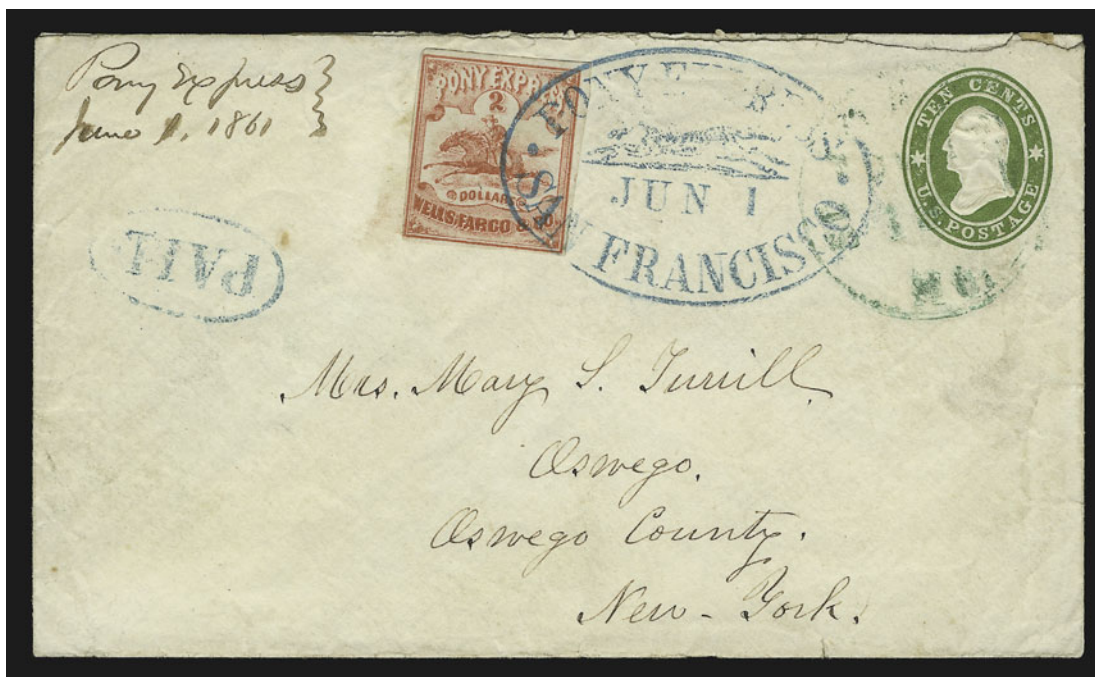 Pony Express
June 1, 1861
PONY EXPRESS
2
DOLLARS
WELLS, FARGO &
PONY
JUN 1
SAN FRANCISCO
TEN CENTS
U.S. POSTAGE
PAID
Mrs. Mary S. Turrill
Oswego.
Oswego County.
New-York.